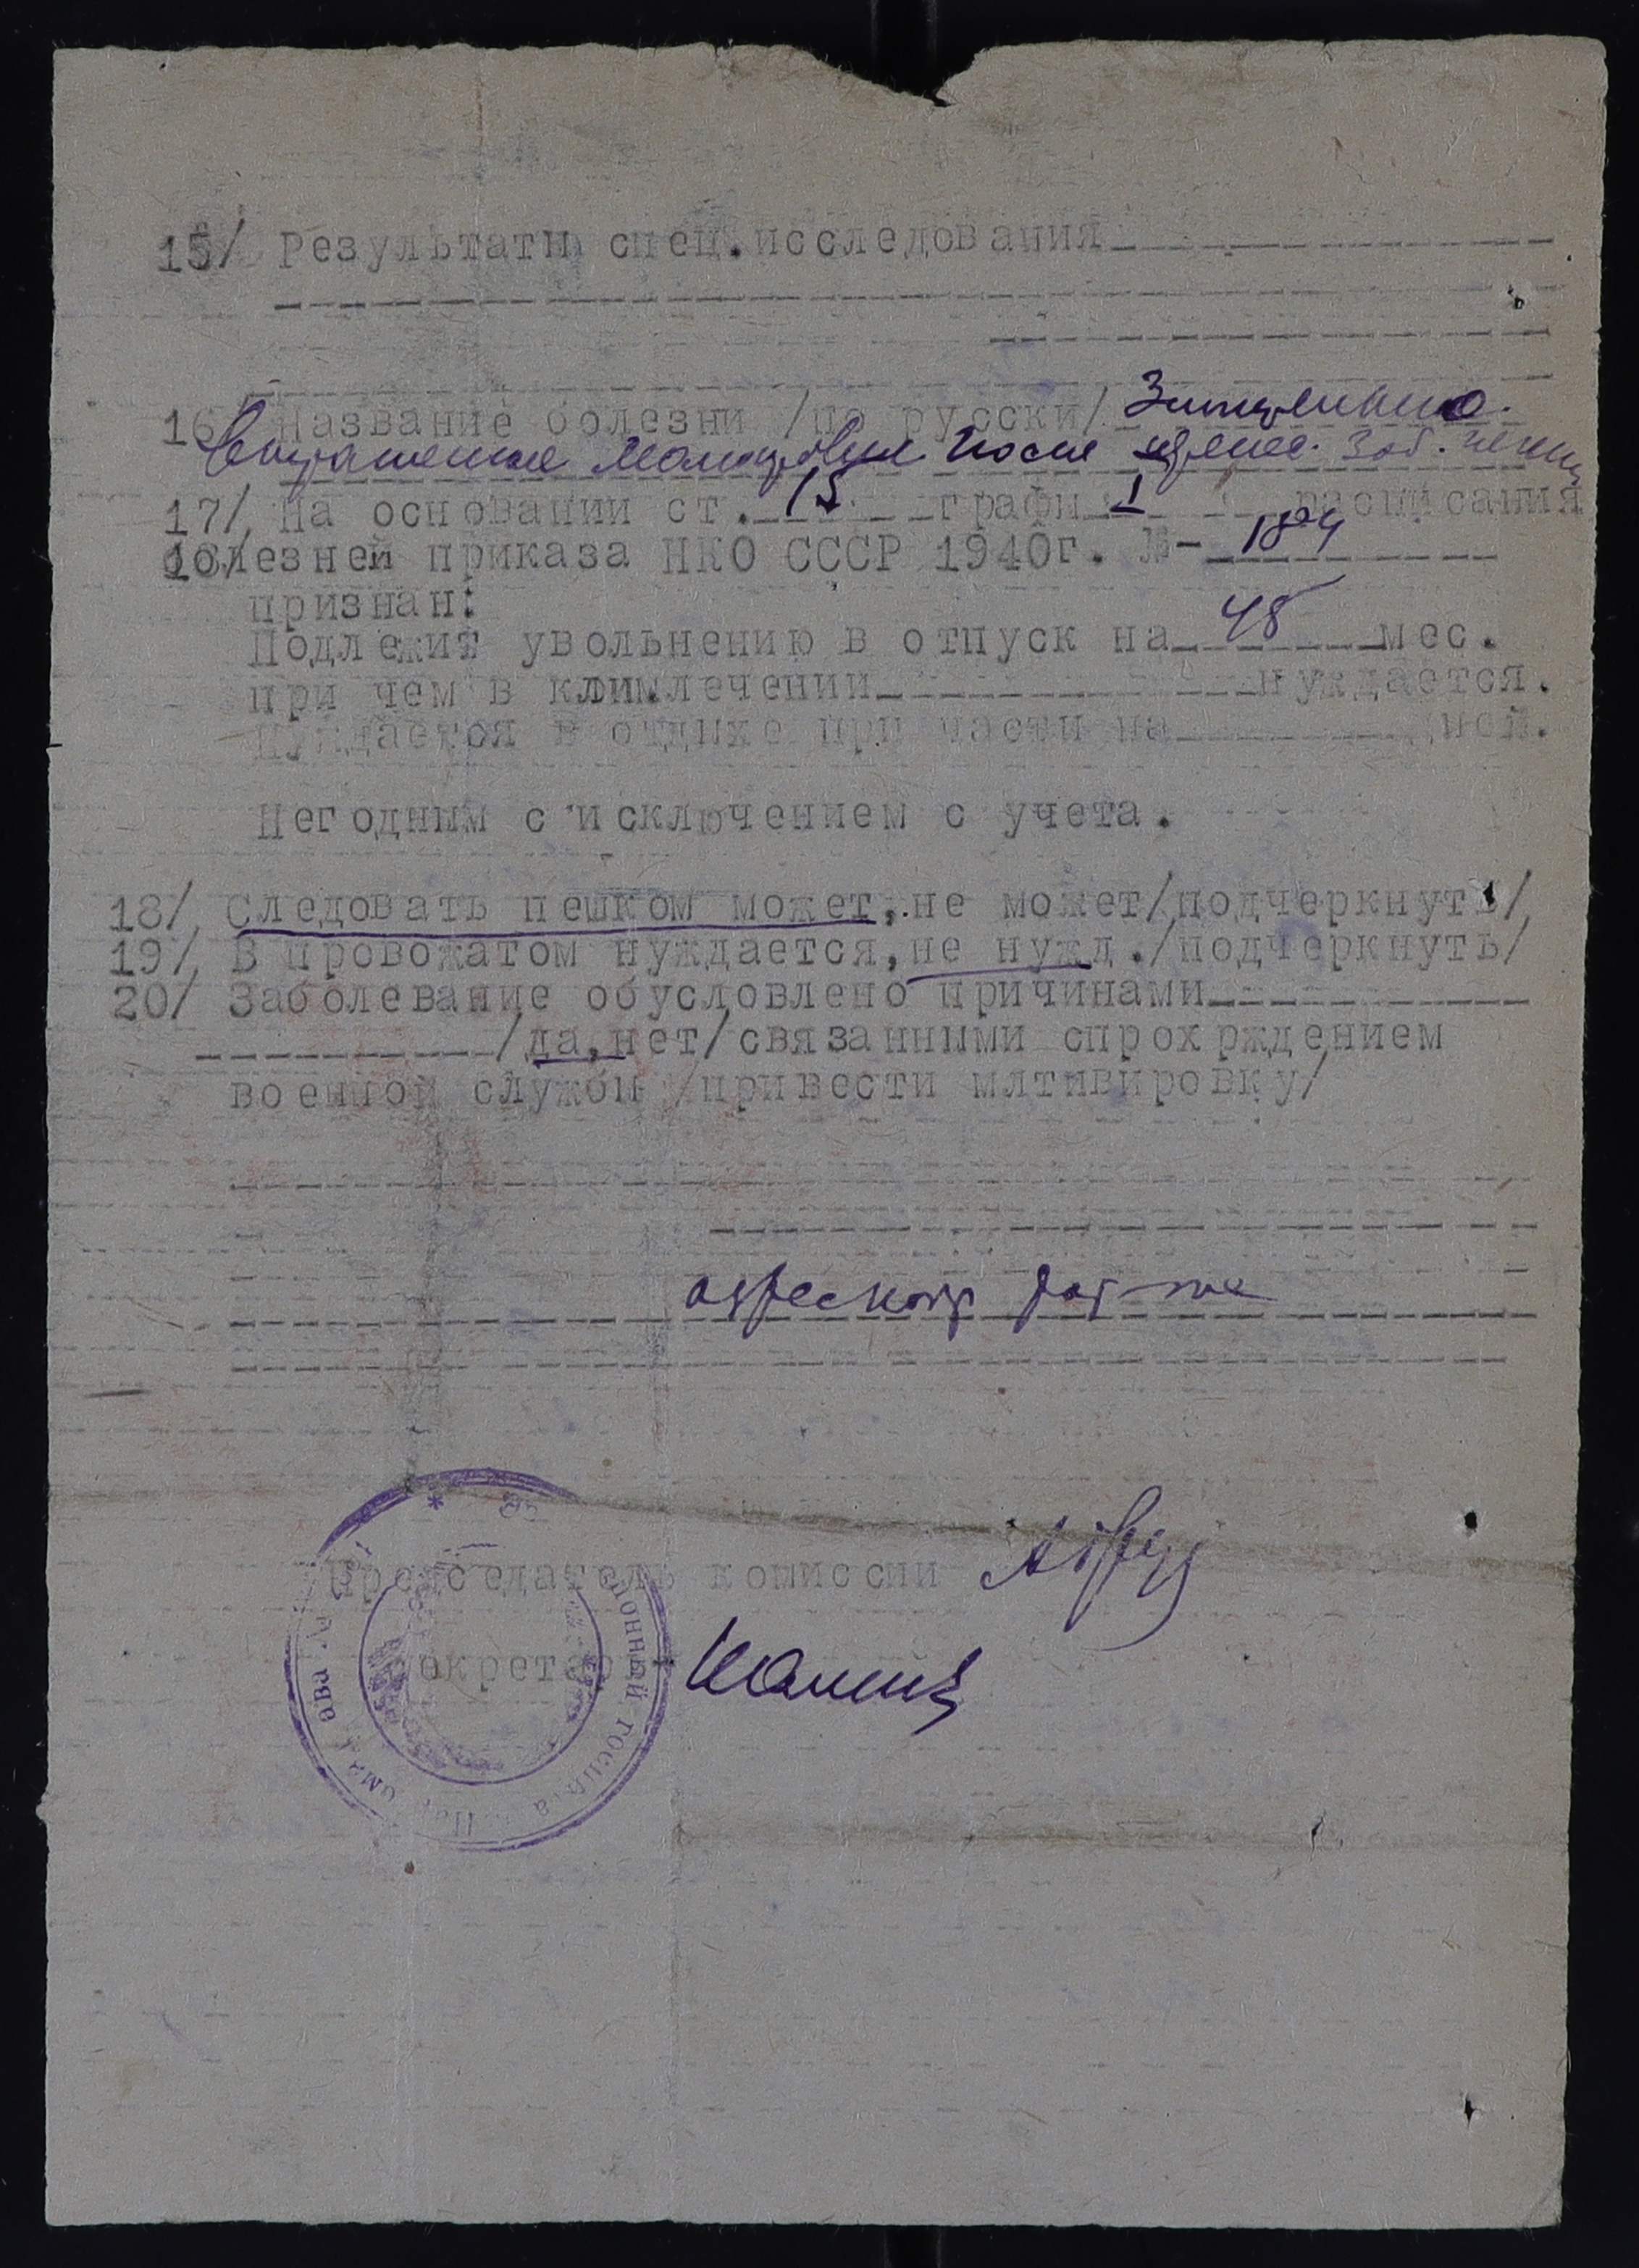 15/ Результаты спец.исследования
16/ Название болезни /по русски/ Значительно
выраженное малокровие после перенес. заб.
17/ На основании ст. 15 графы I расписания
болезней приказа НКО СССР 1940г. №- 184
признан:
Подлежит увольнению в отпуск на 45 мес.
при чем в климлечении нуждается.
нуждается в отдыхе при части на дней.
Негодным с исключением с учета.
18/ Следовать пешком может, не может/подчеркнуть/
19/ В провожатом нуждается, не нужд./подчеркнуть/
20/ Заболевание обусловлено причинами
/да, нет/связанными спрохрждением
военной службы /привести млтивировку/
Председатель комиссии
Секретарь